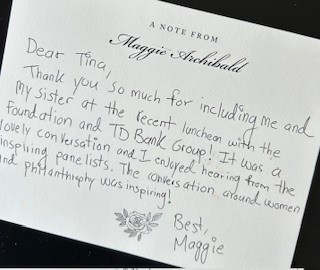 A NOTE FROM
Maggie Archibald
Dear Tina,
Thank you so much for including me and
my sister at the recent luncheon with the
Foundation and TD Bank Group! It was a
lovely conversation and I enjoyed hearing from the
inspiring panelists. The conversation around women
and philanthropy was inspiring!
Best,
Maggie